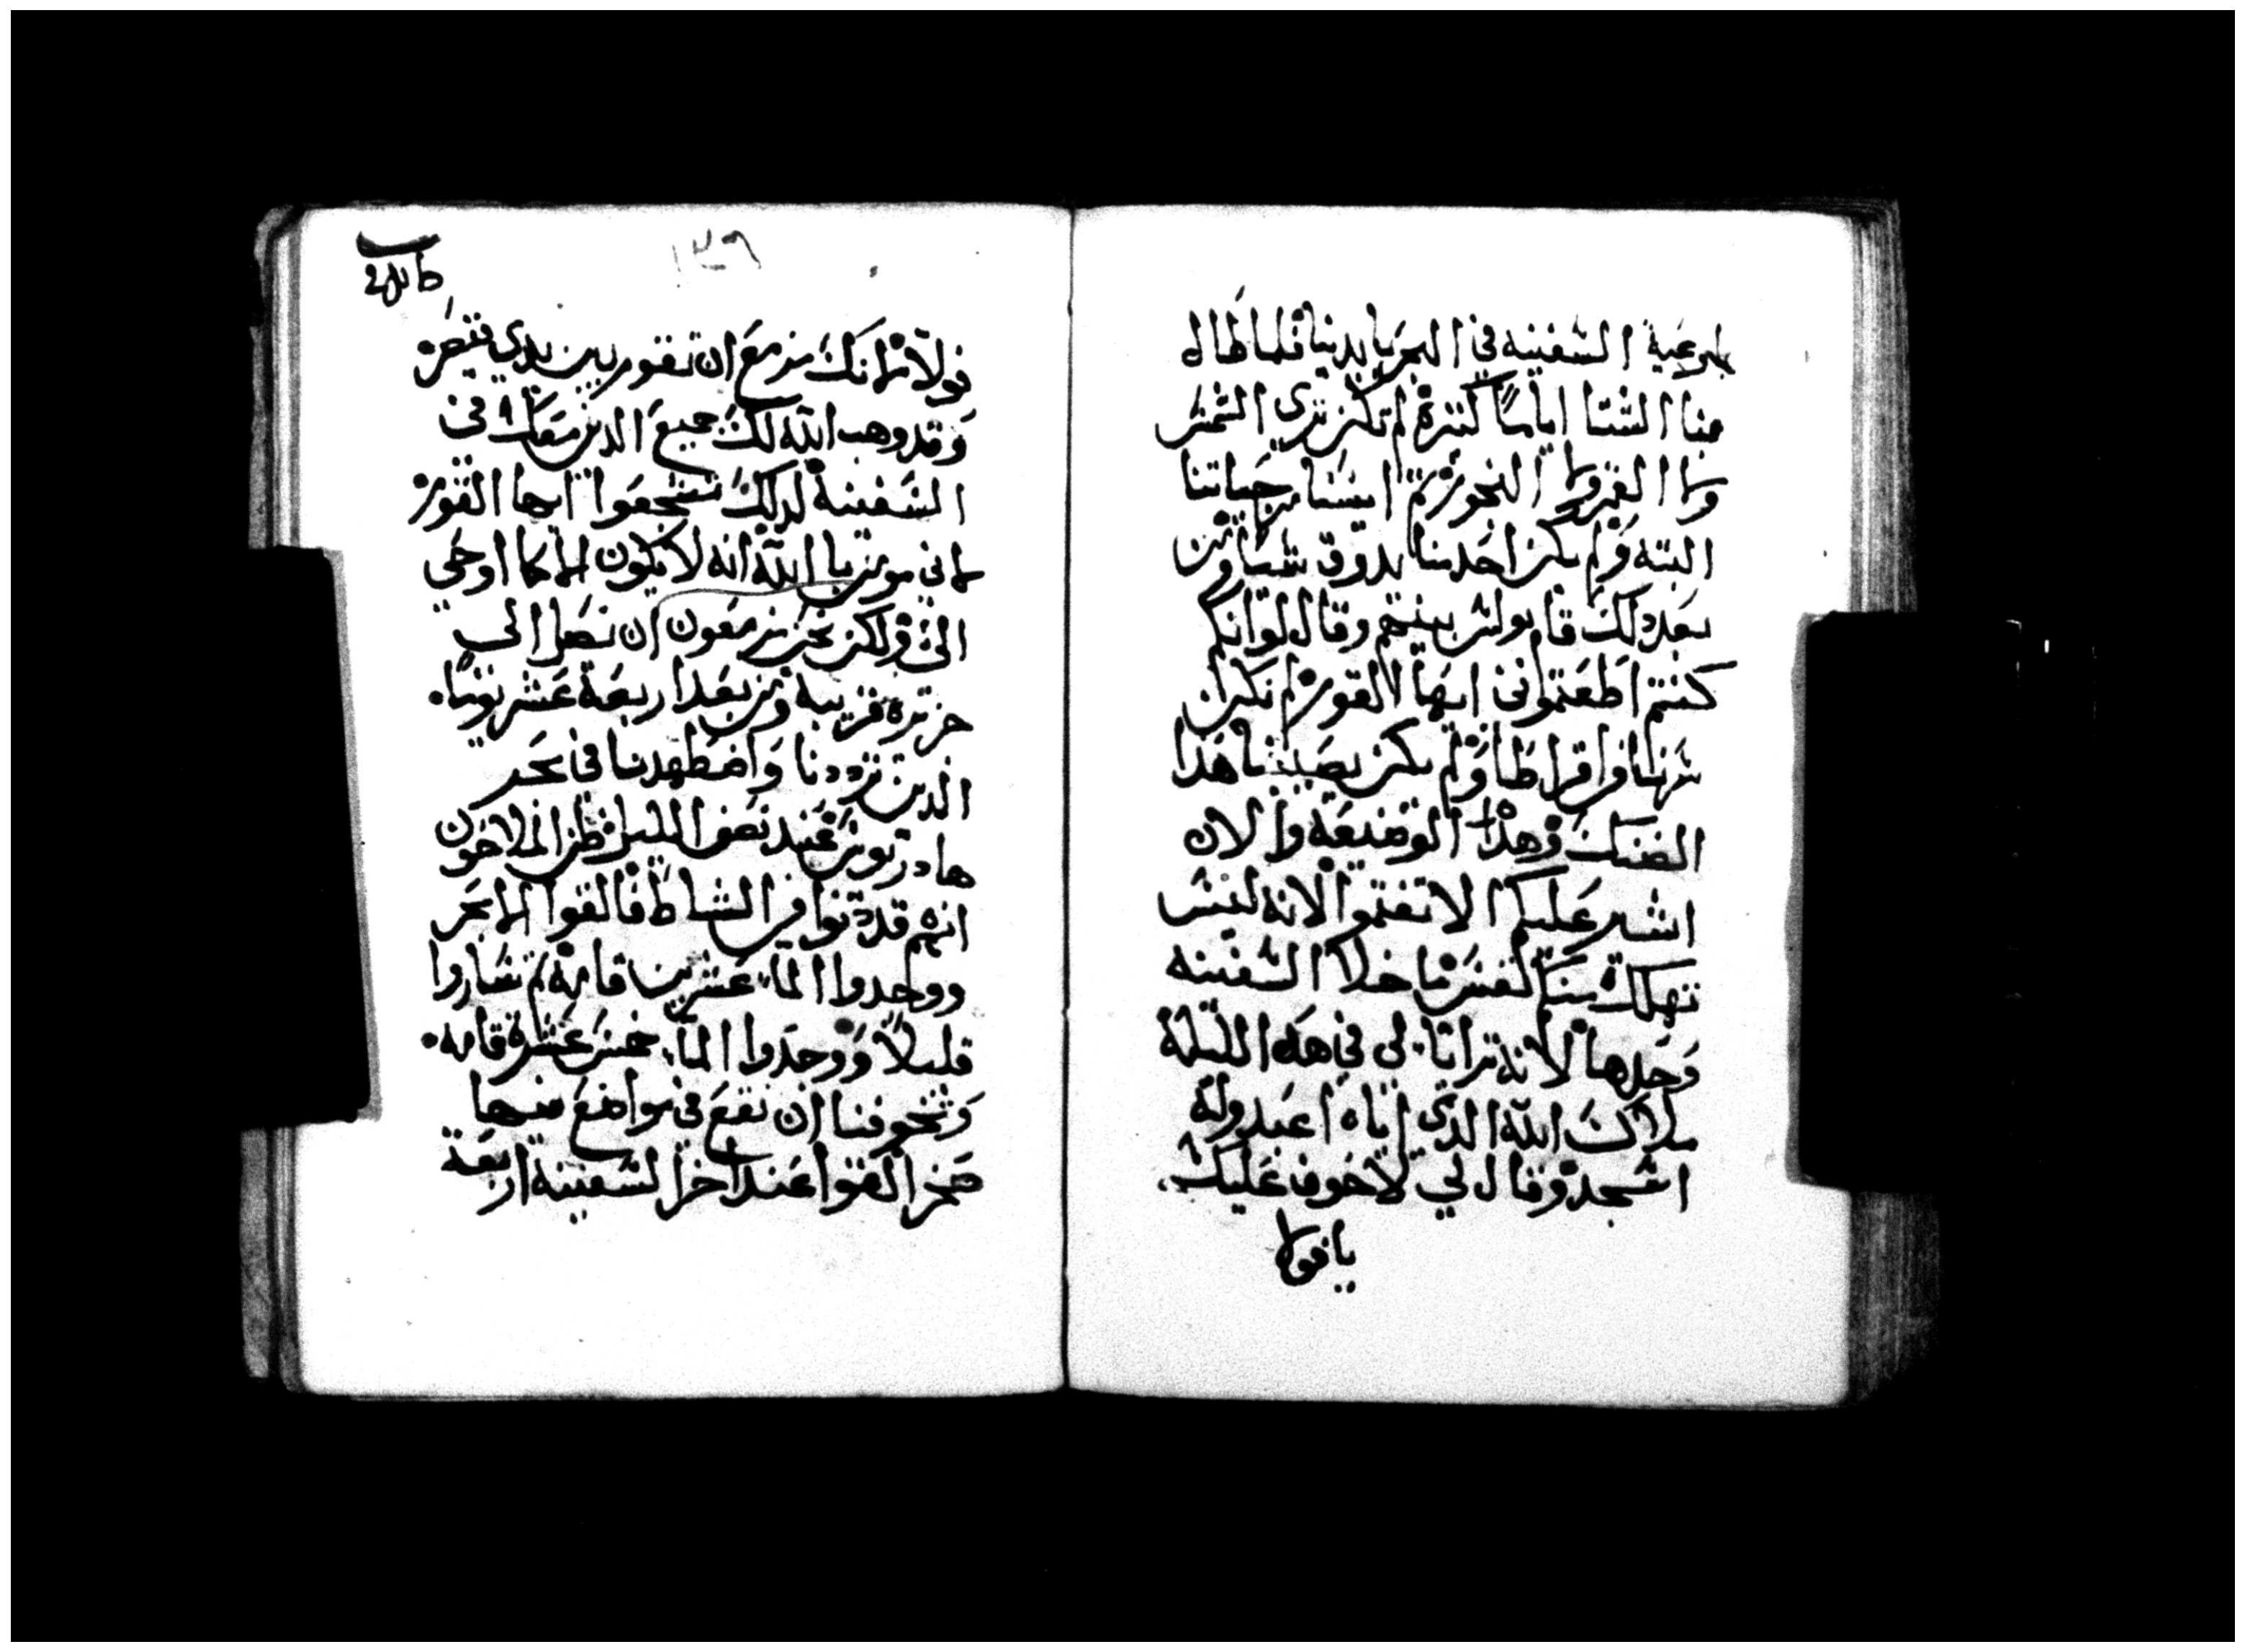 امرعية السفينه في البحر بايدينا فلما طال
منا الشتا اياما كثيرة لم تكن ترى الشمس
ولا القمر ولا النجوم ثم ايسنا من حياتنا
البته ولم يكن احد منا يدوق شيا ومن
بعد دلك قام بولس بينهم وقال لو انكم
كنتم اطعتموني ايها القوم لم نكن
سرنا من اقراطا ولم يكن يصيبنا هدا
الضنك وهذا الوضيعة والان
اشير عليكم الا تغتموا لانه ليس
تهلك منا نفس ما خلا السفينه
وحدها لانه ترايا لي في هده الليلة
ملاك الله الدي اياه اعبد وله
اسجد وقال لي لا خوف عليك
يا فولا
١٣٩
فولا لانك مزمع ان تقوم بين يدي قيصر
وقد وهب الله لك جميع الدين معك في
السفينة لدلك تشجعوا ايها القوم
لاني مومن بالله انه لا يكون الا كما اوحي
الي ولكن نحن مزمعون ان نصل الى
جزيرة قريبه ومن بعد اربعة عشر يوما
الدين ترددنا واضطهدنا في بحر
هادريوس عند نصف الليل ظن الملاحون
انهم قد دنوا من الشاط فالقوا الى البحر
ووجدوا الماء عشرين قامة ثم ساروا
قليلا ووجدوا الماء خمس عشرة قامه
وتخوفنا ان نقع في مواضع فيها
صخر القوا عند اخر السفينه اربعة